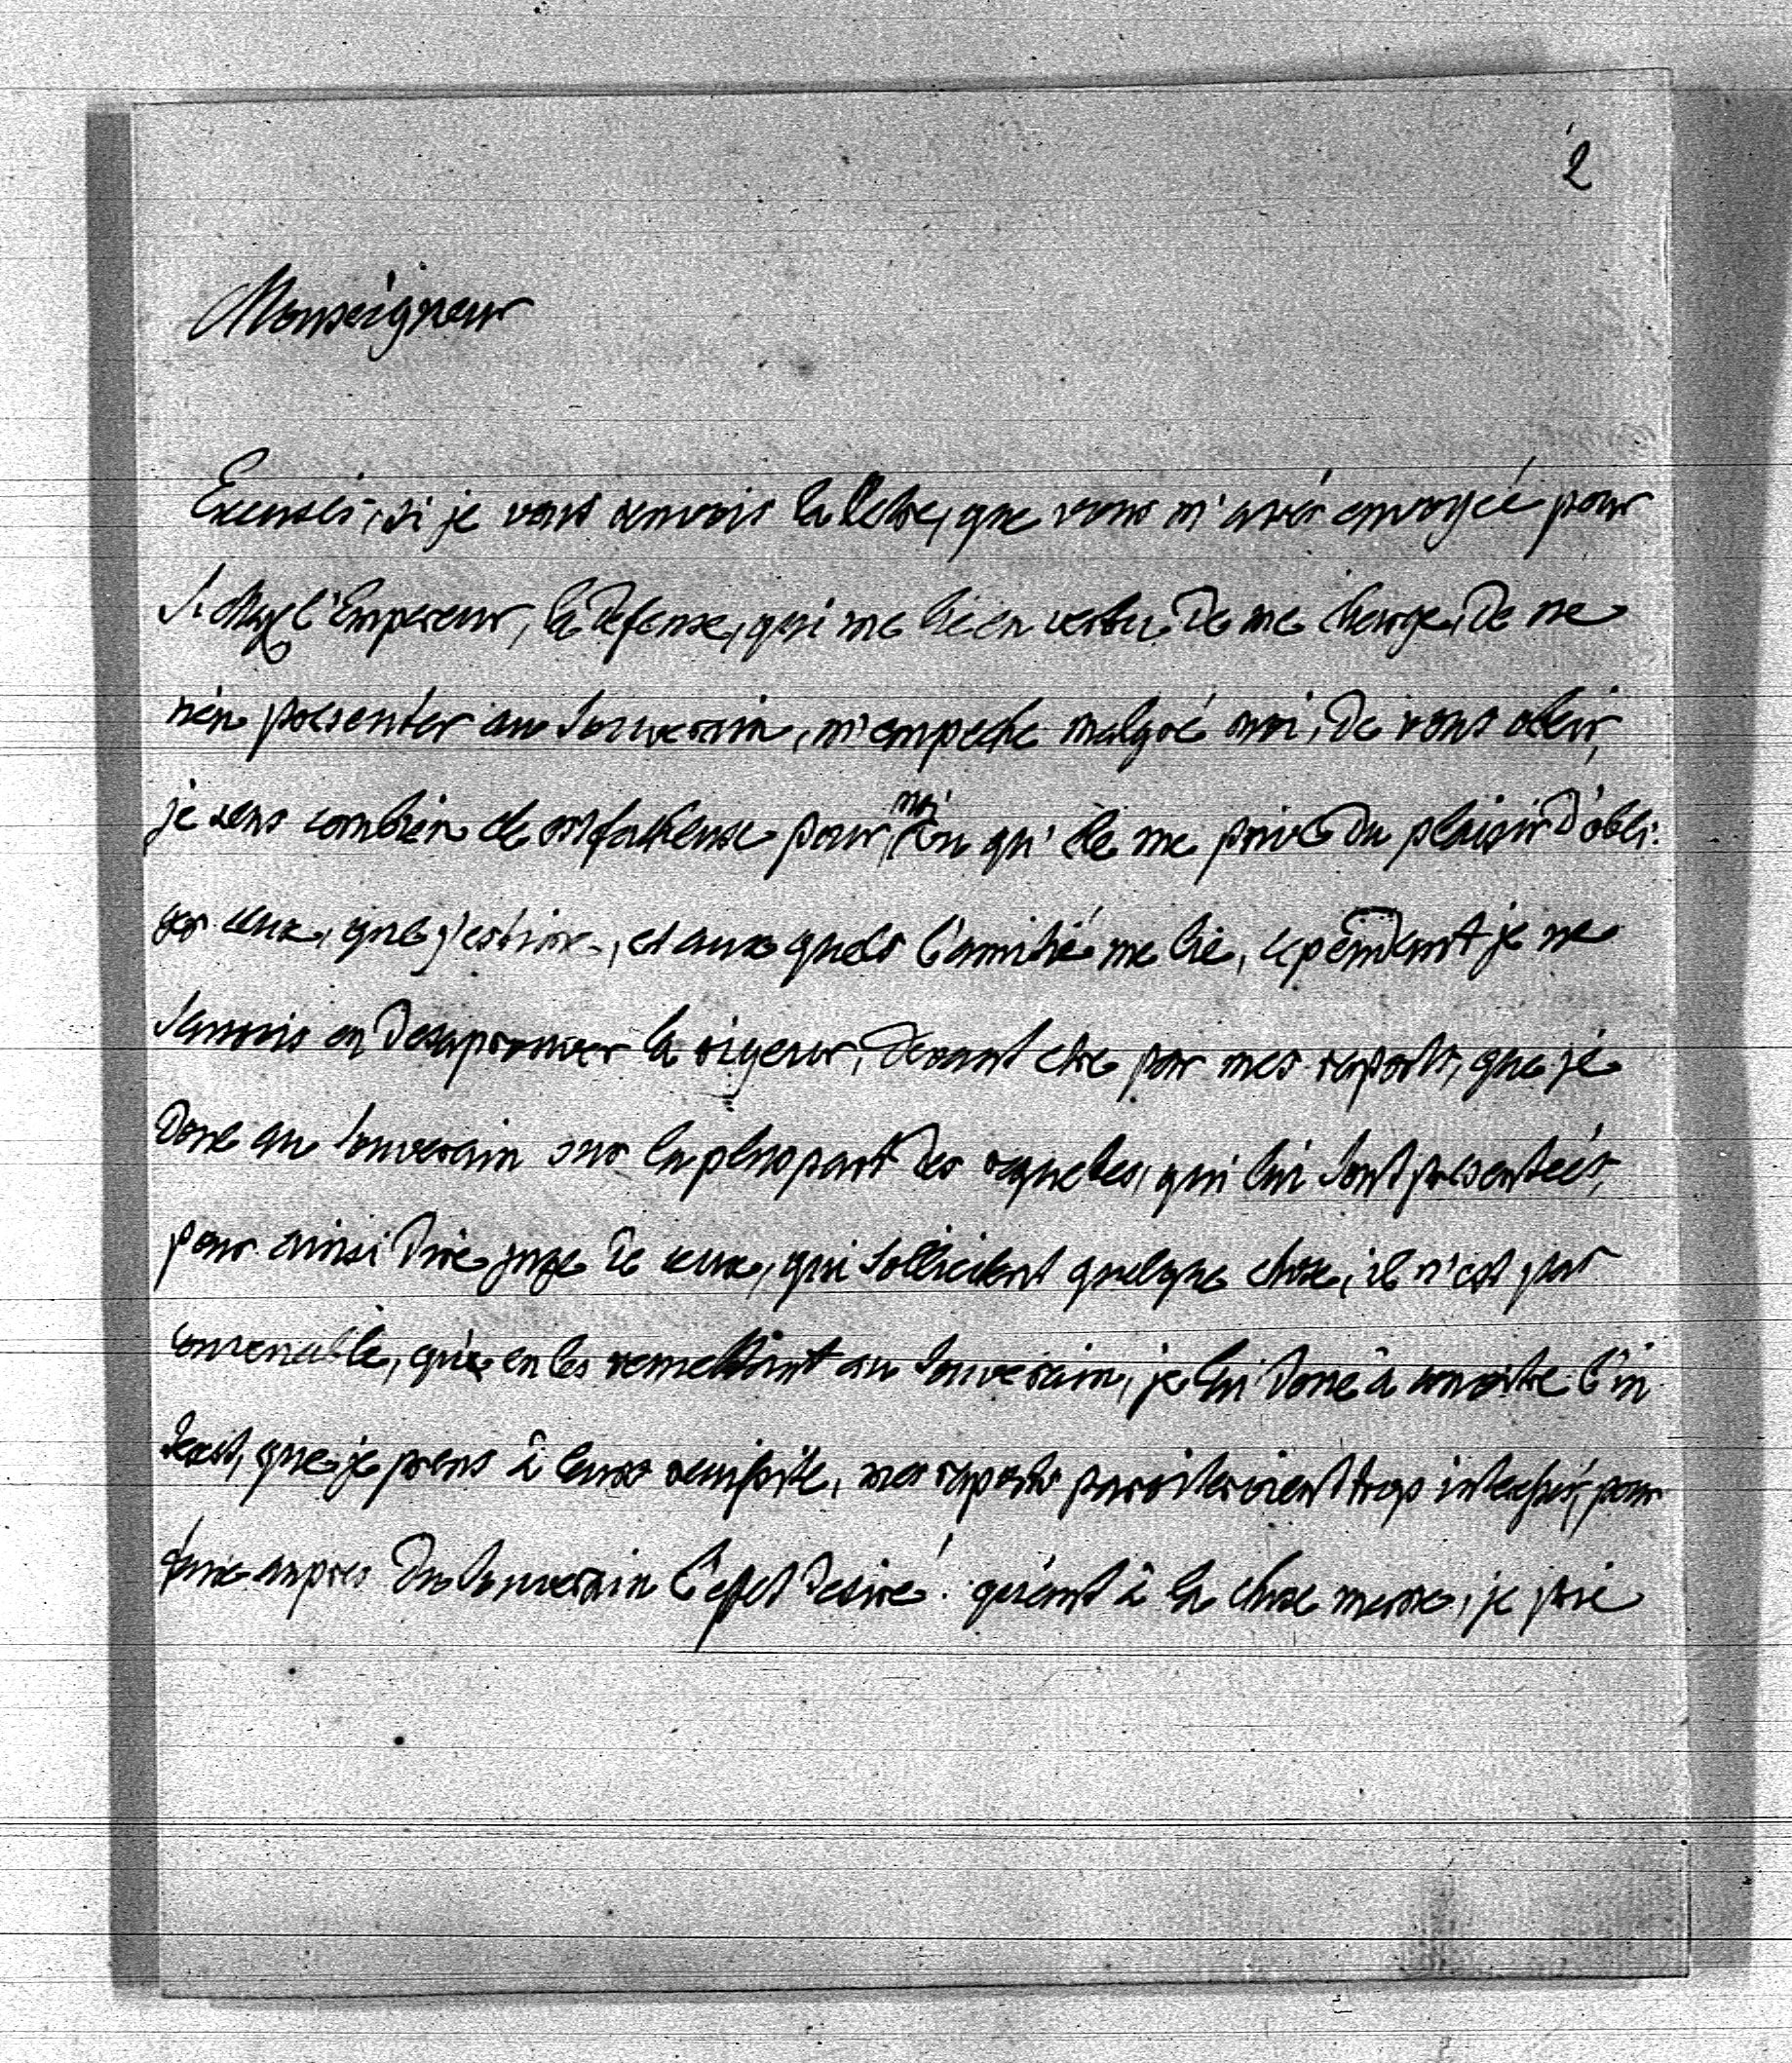 2
Monseigneur
Excusés, si je vous renvois la lettre, que vous m'avés envoyée pour
S. Mge l'Empereur, la defense, qui me lie en vertu de ma charge, de ne
rien presenter au Souverain, m'empeche malgré moi, de vous obeir,
je sens combien elle est facheuse pour moi en qu'elle me prive du plaisir d'obli-
ger ceux, que j'estime, et aux quels l'amitié me lie, cependant je ne
saurois en desaprouver la rigeur, devant etre par mes raports, que je
done au Souverain sur la pluspart des requetes, qui lui sont presentées,
pour ainsi dire juge de ceux, qui sollicitent quelque chose, il n'est pas
convenable, qu'en les remettant au Souverain, je lui done à conoitre l'in
terest, que je prens à leurs reussite, mes raports paroiteroient trop interessés, pour
faire aupres du Souverain l'effet desiré. quant à la chose meme, je prie